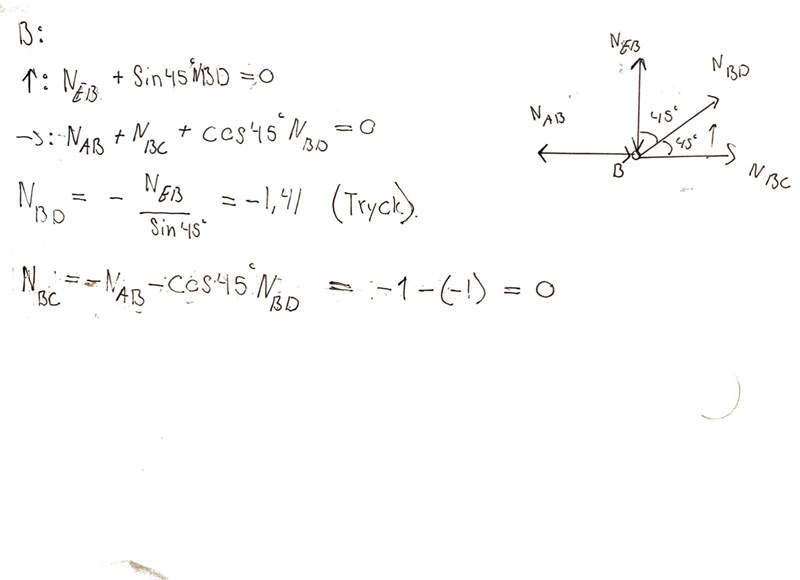 B:
↑: N_EB + Sin45° NBD = 0
→: -N_AB + N_BC + cos45° N_BD = 0
N_BD = - N_EB / Sin45° = -1,41 (Tryck).
N_BC = -N_AB - cos45° N_BD = -1 - (-1) = 0
N_EB
N_BD
N_AB
45°
45°
B
N_BC